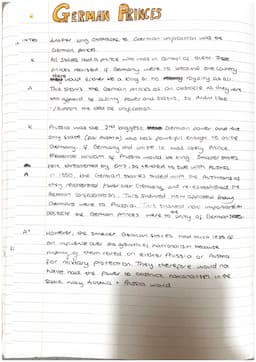 GERMAN PRINCES
INTRO Another key obstacle to German unification was the
German princes.
K All states had a prince who was in control of them. These
princes realised if Germany were to become one country
there would either be a king or no royalty at all.
A This shows the German princes as an obstacle as they were
too of losing power and status, so didn't like
/support the idea of unification.
K Prussia was the 2nd biggest German power and the
only state (bar Austria) who was powerful enough to unite
Germany. If Germany did unite it was likely Prince
William of Prussia would be king. Smaller states
were threatened by this, so tended to side with Austria.
A in 1850, the German states sided with the Austrians as
they restored power over Germany, and re-established the
German confederation. This showed how opposed many
Germans were to Prussia. This showed how important an
obstacle the German princes were to the unity of German states.
A+ However, the smaller German states had much less of
an influence over the growth of nationalism because
many of them relied on either Prussia or Austria
for military protection. They therefore would not
have had the power to obstruct nationalism in the
same way Austria + Prussia would.